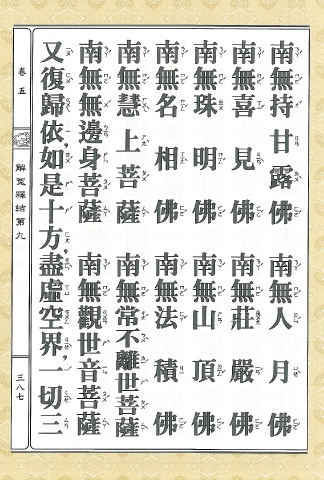 南無持甘露佛　南無人月佛
南無喜見佛　南無莊嚴佛
南無珠明佛　南無山頂佛
南無名相佛　南無法積佛
南無慧上菩薩　南無常不離世菩薩
南無無邊身菩薩　南無觀世音菩薩
又復歸依，如是十方，盡虛空界，一切三
卷五
解冤釋結第九
三八七